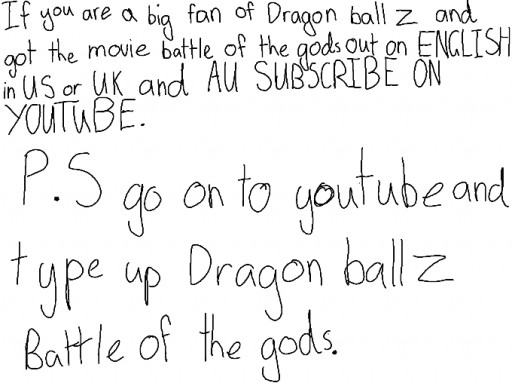 If you are a big fan of Dragon ball Z and
got the movie battle of the gods out on ENGLISH
in US or UK and AU SUBSCRIBE ON
YOUTUBE.
P.S go on to youtube and
type up Dragon ball Z
Battle of the gods.